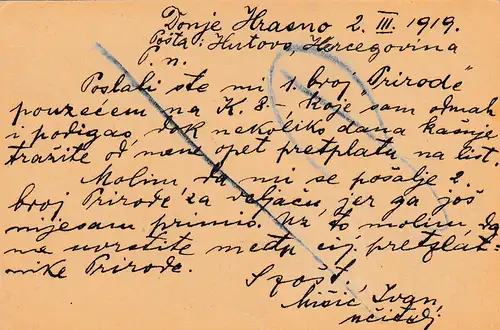 Donje Hrasno 2. III. 1919.
Pošta: Hutovo, Hercegovina
P. n.
Poslali ste mi 1. broj "Prirode"
pouzećem na K. 8- koje sam odmah
i podigao, dok nekoliko dana kašnje
tražite od mene opet pretplatu na list
Molim da mi se pošalje 2.
broj "Prirode" za veljaču, jer ga još
nijesam primio. Uz to molim, da
me uvrstite među cij. pretplat-
nike Prirode.
S pošt.
Mišić Ivan,
učitelj